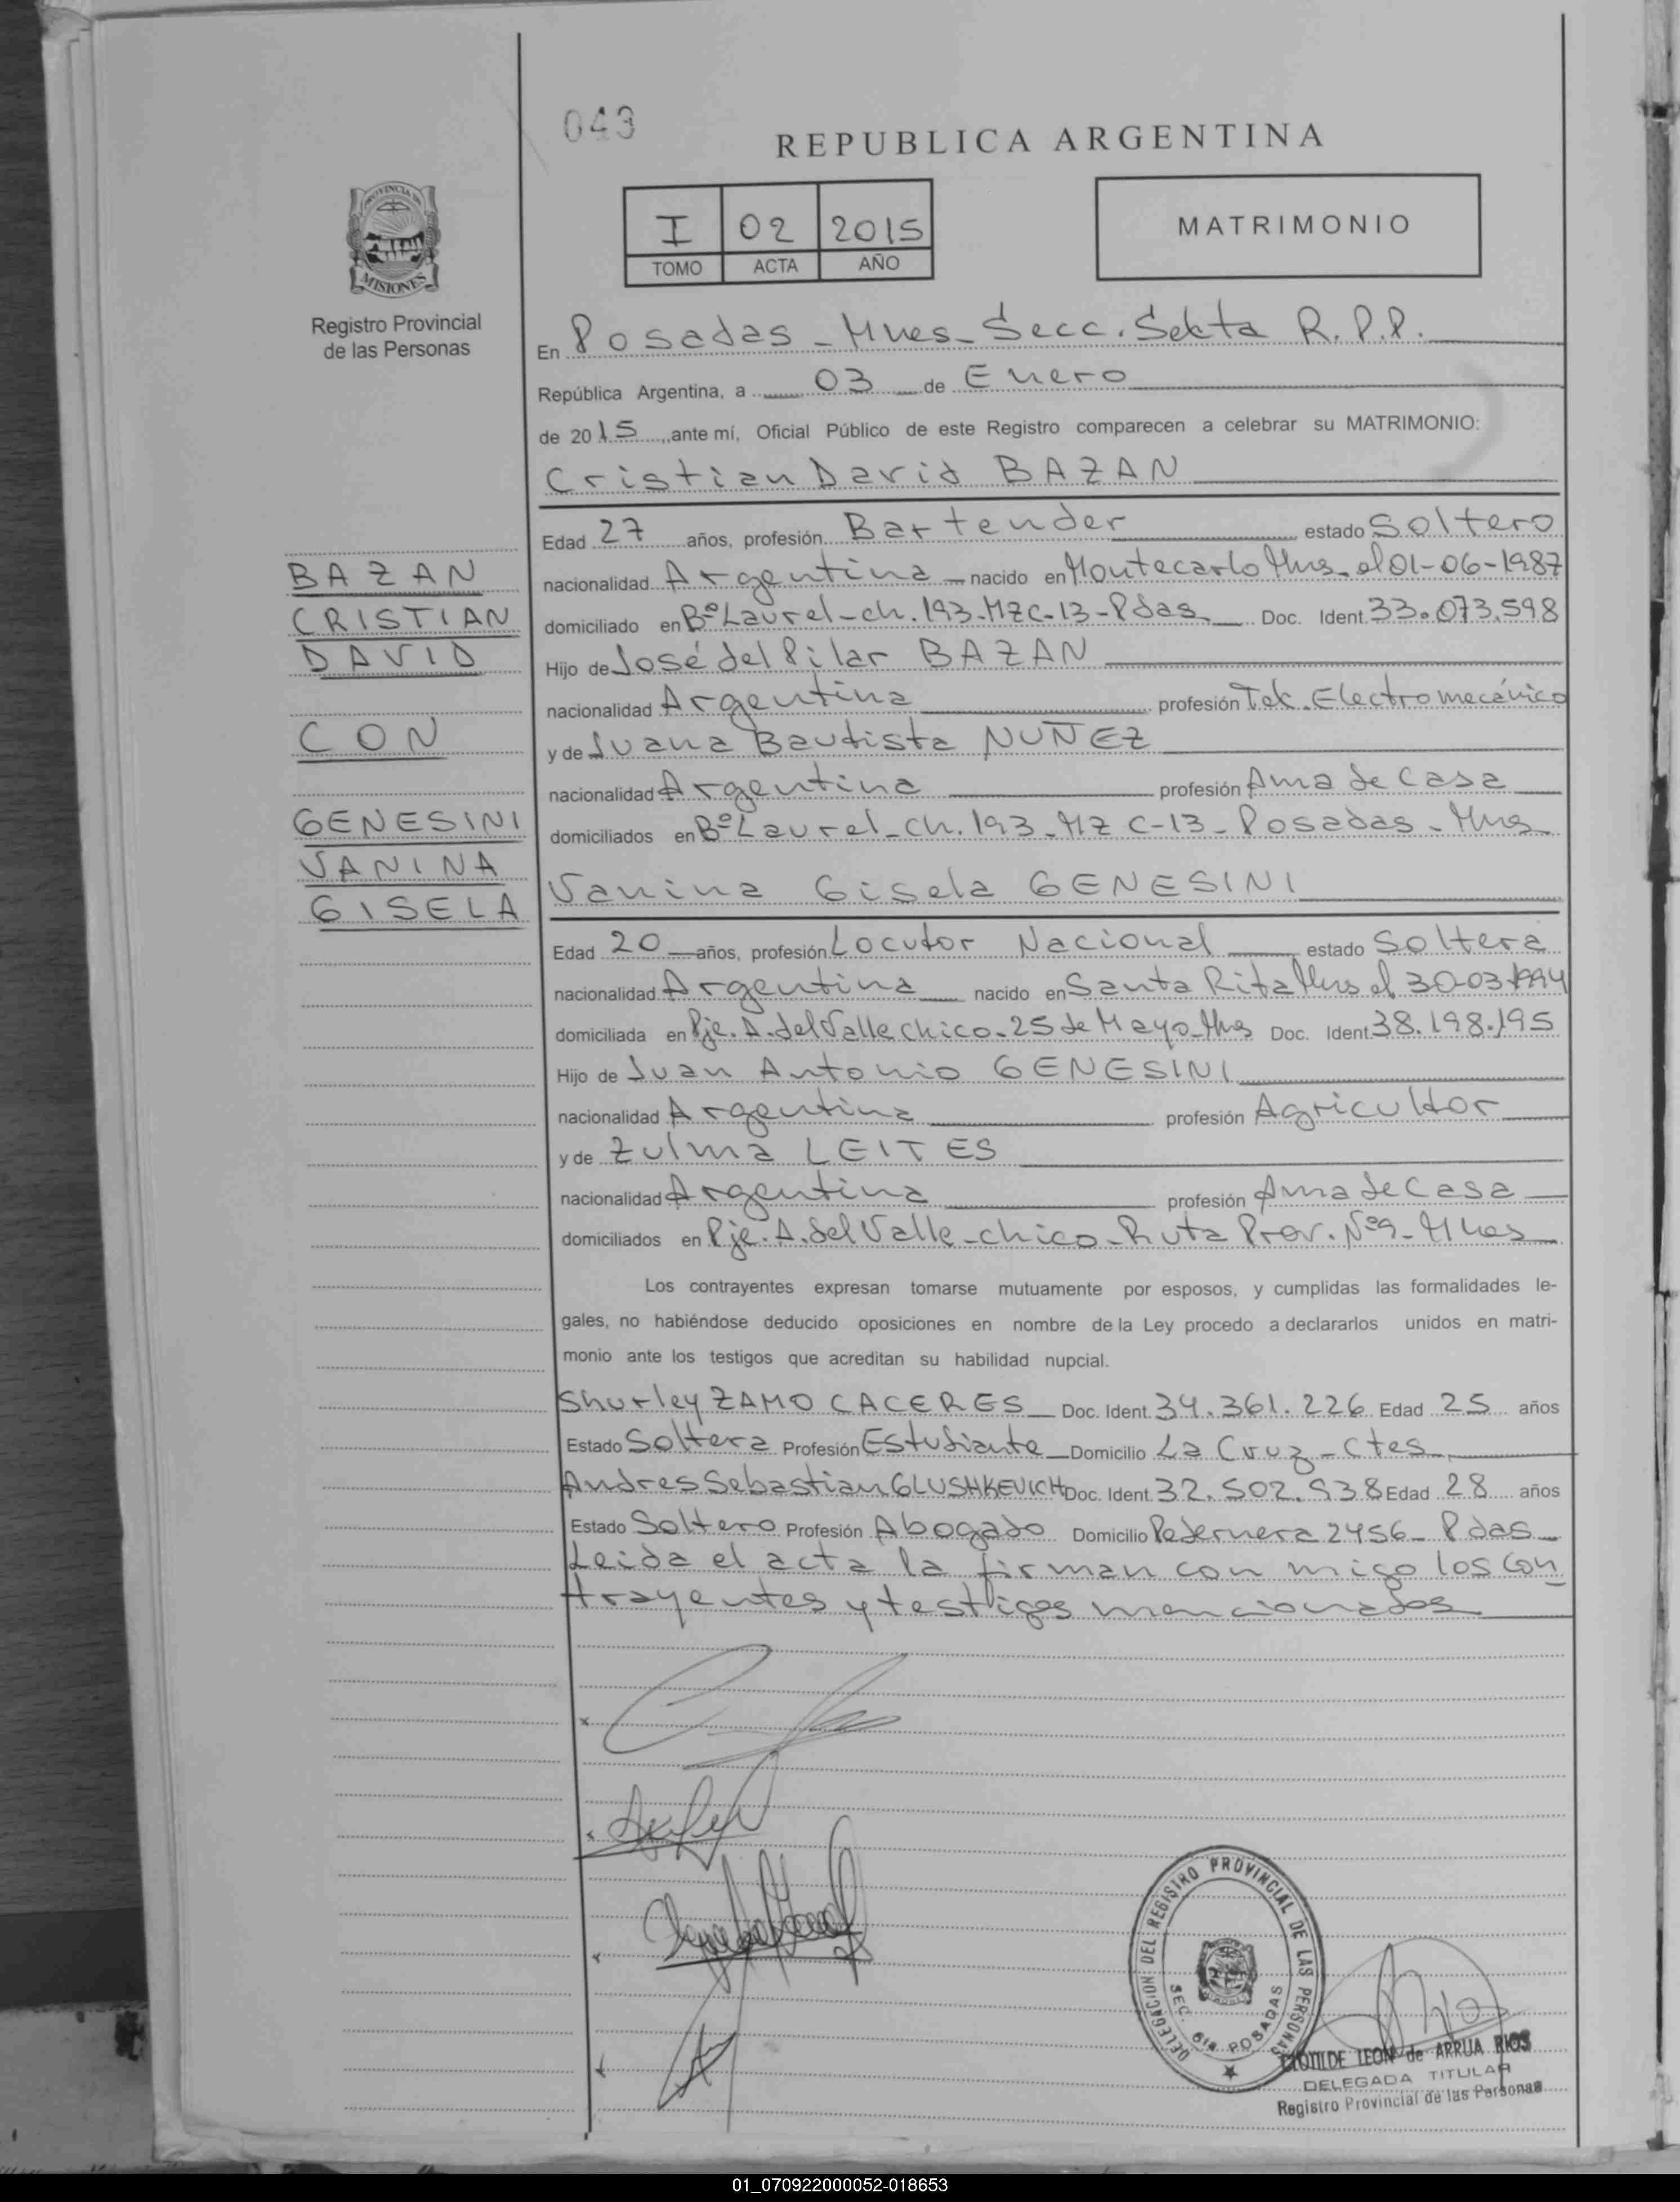 043
REPUBLICA ARGENTINA
I 02 2015
TOMO ACTA AÑO
MATRIMONIO
PROVINCIA DE
MISIONES
Registro Provincial
de las Personas
En Posadas - Mnes - Secc. Sexta R.P.P.
República Argentina, a 03 de Enero
de 2015, ante mí, Oficial Público de este Registro comparecen a celebrar su MATRIMONIO:
Cristian David BAZAN
Edad 27 años, profesión Bartender estado Soltero
nacionalidad Argentina nacido en Montecarlo Mns. el 01-06-1987
domiciliado en Bº Laurel - ch. 193 - MZ C-13 - Pdas Doc. Ident. 33.073.598
Hijo de José del Pilar BAZAN
nacionalidad Argentina profesión Tek. Electromecánico
y de Juana Bautista NUÑEZ
nacionalidad Argentina profesión Ama de Casa
domiciliados en Bº Laurel - Ch. 193 - MZ C-13 - Posadas - Mns
BAZAN
CRISTIAN
DAVID
CON
GENESINI
VANINA
GISELA
Vanina Gisela GENESINI
Edad 20 años, profesión Locutor Nacional estado Soltera
nacionalidad Argentina nacido en Santa Rita Mns el 30-03-1994
domiciliada en Pje. A. del Valle chico - 25 de Mayo - Mns Doc. Ident. 38.198.195
Hijo de Juan Antonio GENESINI
nacionalidad Argentina profesión Agricultor
y de Zulma LEITES
nacionalidad Argentina profesión Ama de Casa
domiciliados en Pje. A. del Valle - chico - Ruta Prov. Nº 9 - Mnes
Los contrayentes expresan tomarse mutuamente por esposos, y cumplidas las formalidades le-
gales, no habiéndose deducido oposiciones en nombre de la Ley procedo a declararlos unidos en matri-
monio ante los testigos que acreditan su habilidad nupcial.
Shurley ZAMO CACERES Doc. Ident. 34.361.226 Edad 25 años
Estado Soltera Profesión Estudiante Domicilio La Cruz - Ctes
Andres Sebastian GLUSHKEVICH Doc. Ident. 32.502.938 Edad 28 años
Estado Soltero Profesión Abogado Domicilio Pedernera 2456 - Pdas
Leida el acta la firman con migo los con
trayentes y testigos mencionados
DELEGACION DEL REGISTRO PROVINCIAL DE LAS PERSONAS
SEC. 6ta POSADAS
CLOTILDE LEON de ARRUA RIOS
DELEGADA TITULAR
Registro Provincial de las Personas
01_070922000052-018653